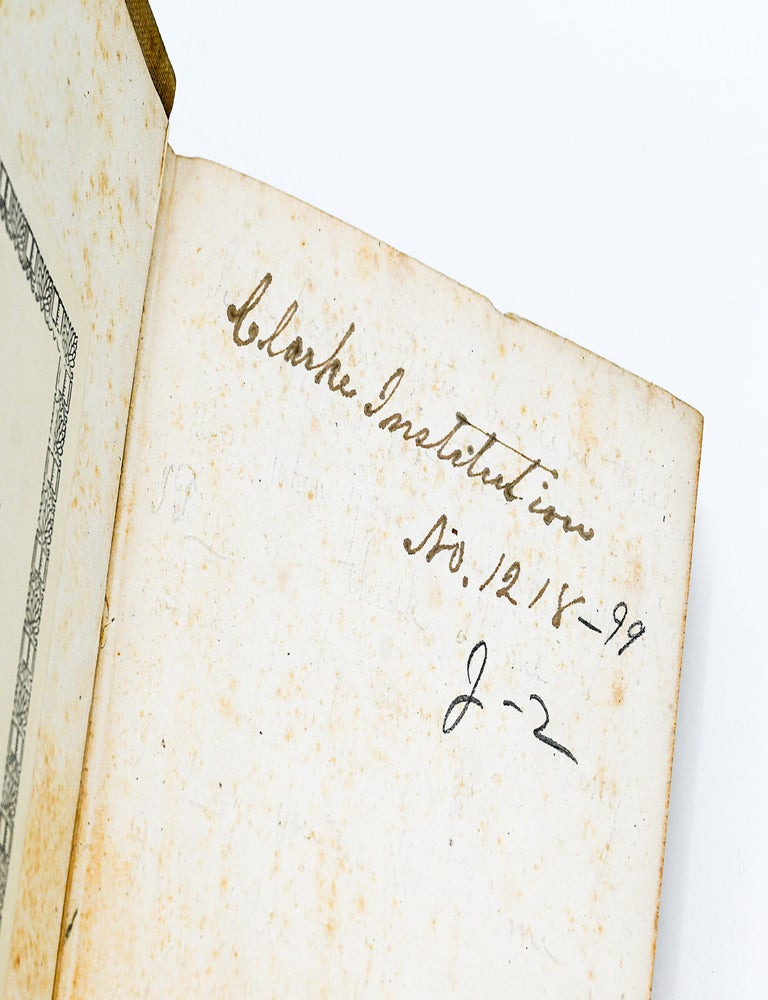 Clarke Institution
No. 1218-99
J-2